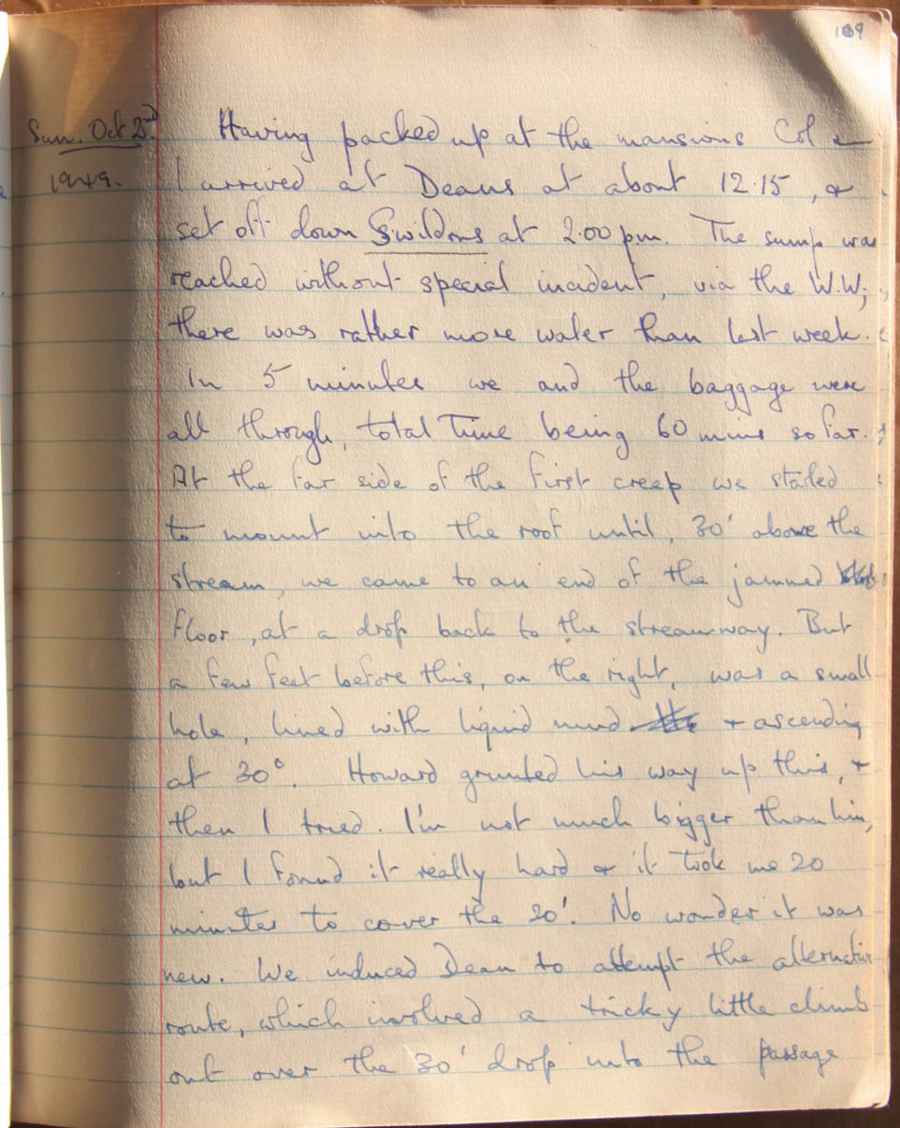 189
Sun. Oct 2nd
1949.
Having packed up at the mansions Col &
I arrived at Deans at about 12.15, &
set off down Swildons at 2.00 pm. The sump was
reached without special incident, via the W.W;
there was rather more water than last week.
In 5 minutes we and the baggage were
all through, total time being 60 mins so far.
At the far side of the first creep we started
to mount into the roof until, 30' above the
stream, we came to an end of the jammed
floor, at a drop back to the streamway. But
a few feet before this, on the right, was a small
hole, lined with liquid mud & ascending
at 30°. Howard grunted his way up this, &
then I tried. I'm not much bigger than him,
but I found it really hard & it took me 20
minutes to cover the 20'. No wonder it was
new. We induced Dean to attempt the alternative
route, which involved a tricky little climb
out over the 30' drop into the passage